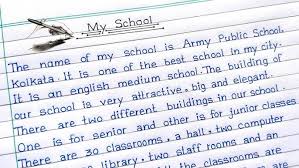 My School
The name of my school is Army Public School
Kolkata. It is one of the best school in my city.
It is an english medium school. The building of
our school is very attractive, big and elegant.
There are two different buildings in our school.
One is for senior and other is for junior classes
There are 30 classrooms, a hall, two computer
library, two staff rooms and an
the classrooms are